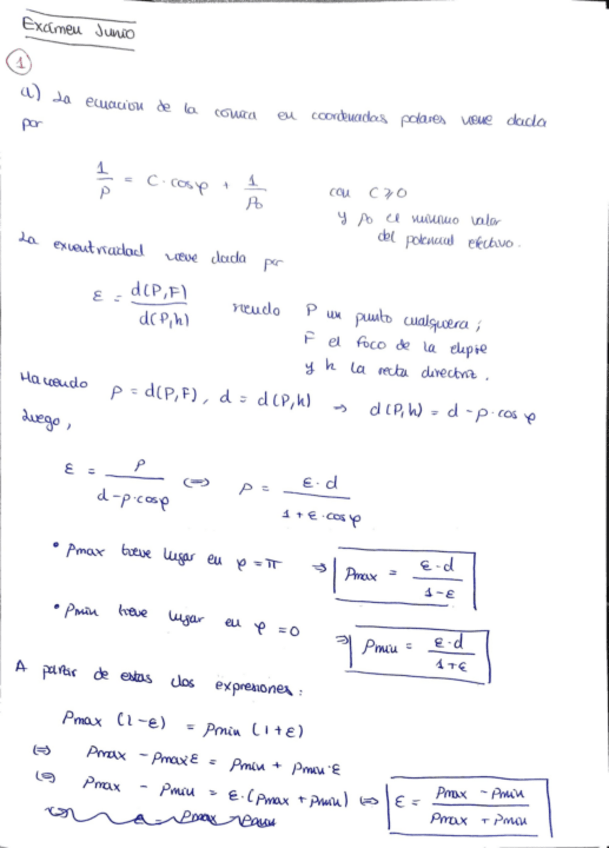 Exámen Junio
1
a) La ecuacion de la cónica en coordenadas polares viene dada
por
1/ρ = C · cos φ + 1/ρ₀ con C ⩾ 0
y ρ₀ el mínimo valor
del potencial efectivo.
La excentricidad viene dada por
ε = d(P,F)/d(P,h) siendo P un punto cualquiera ;
F el foco de la elipse
y h la recta directriz .
Haciendo ρ = d(P,F) , d = d(P,h) ⇒ d(P,h) = d - ρ · cos φ
Luego ,
ε = ρ/(d - ρ · cos φ) ⇔ ρ = ε · d/(1 + ε · cos φ)
• ρmax tiene lugar en φ = π ⇒ ρmax = ε · d/(1 - ε)
• ρmin tiene lugar en φ = 0 ⇒ ρmin = ε · d/(1 + ε)
A partir de estas dos expresiones :
ρmax (1 - ε) = ρmin (1 + ε)
⇔ ρmax - ρmax ε = ρmin + ρmin · ε
⇔ ρmax - ρmin = ε · (ρmax + ρmin) ⇔ ε = (ρmax - ρmin)/(ρmax + ρmin)